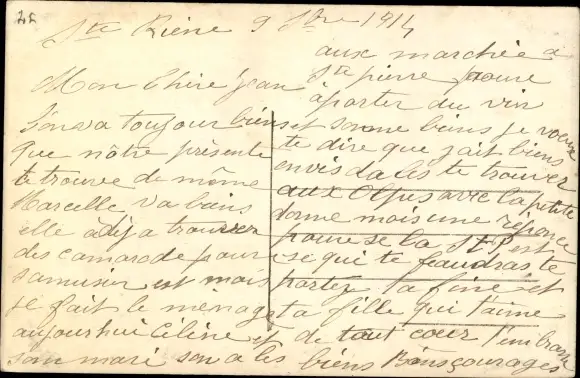 22
Ste Reine 9 Sbre 1914
Mon Chère Jean
J'on va toujour biens
que nôtre présente
te trouve de même
Marcelle va biens
elle a déja trouver
des camarade pour
s'amuser est mois
je fait le ménage
aujourhui Céline et
son mari son a les
aux marchée a
Ste pierre pour
aporter du vin
et somme biens je veux
te dire que jait biens
envis da les te trouver
aux Alpes avec la petite
donne mois une réponce
pour se la STP est
se qui te faudras te
porter ta fine et
ta fille qui t'aime
de tout cœur t'embrasse
biens Bons courages